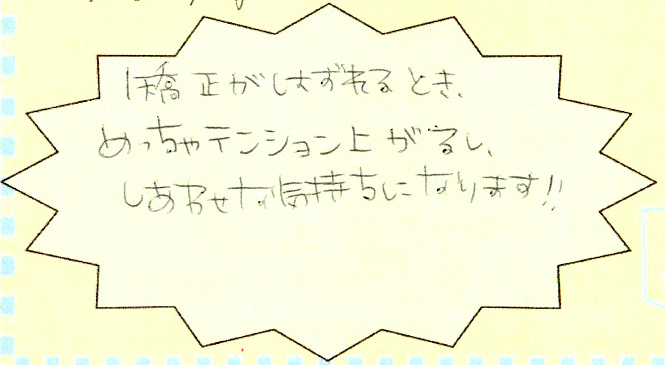 矯正がはずれるとき、
めっちゃテンション上がるし、
しあわせな気持ちになります!!